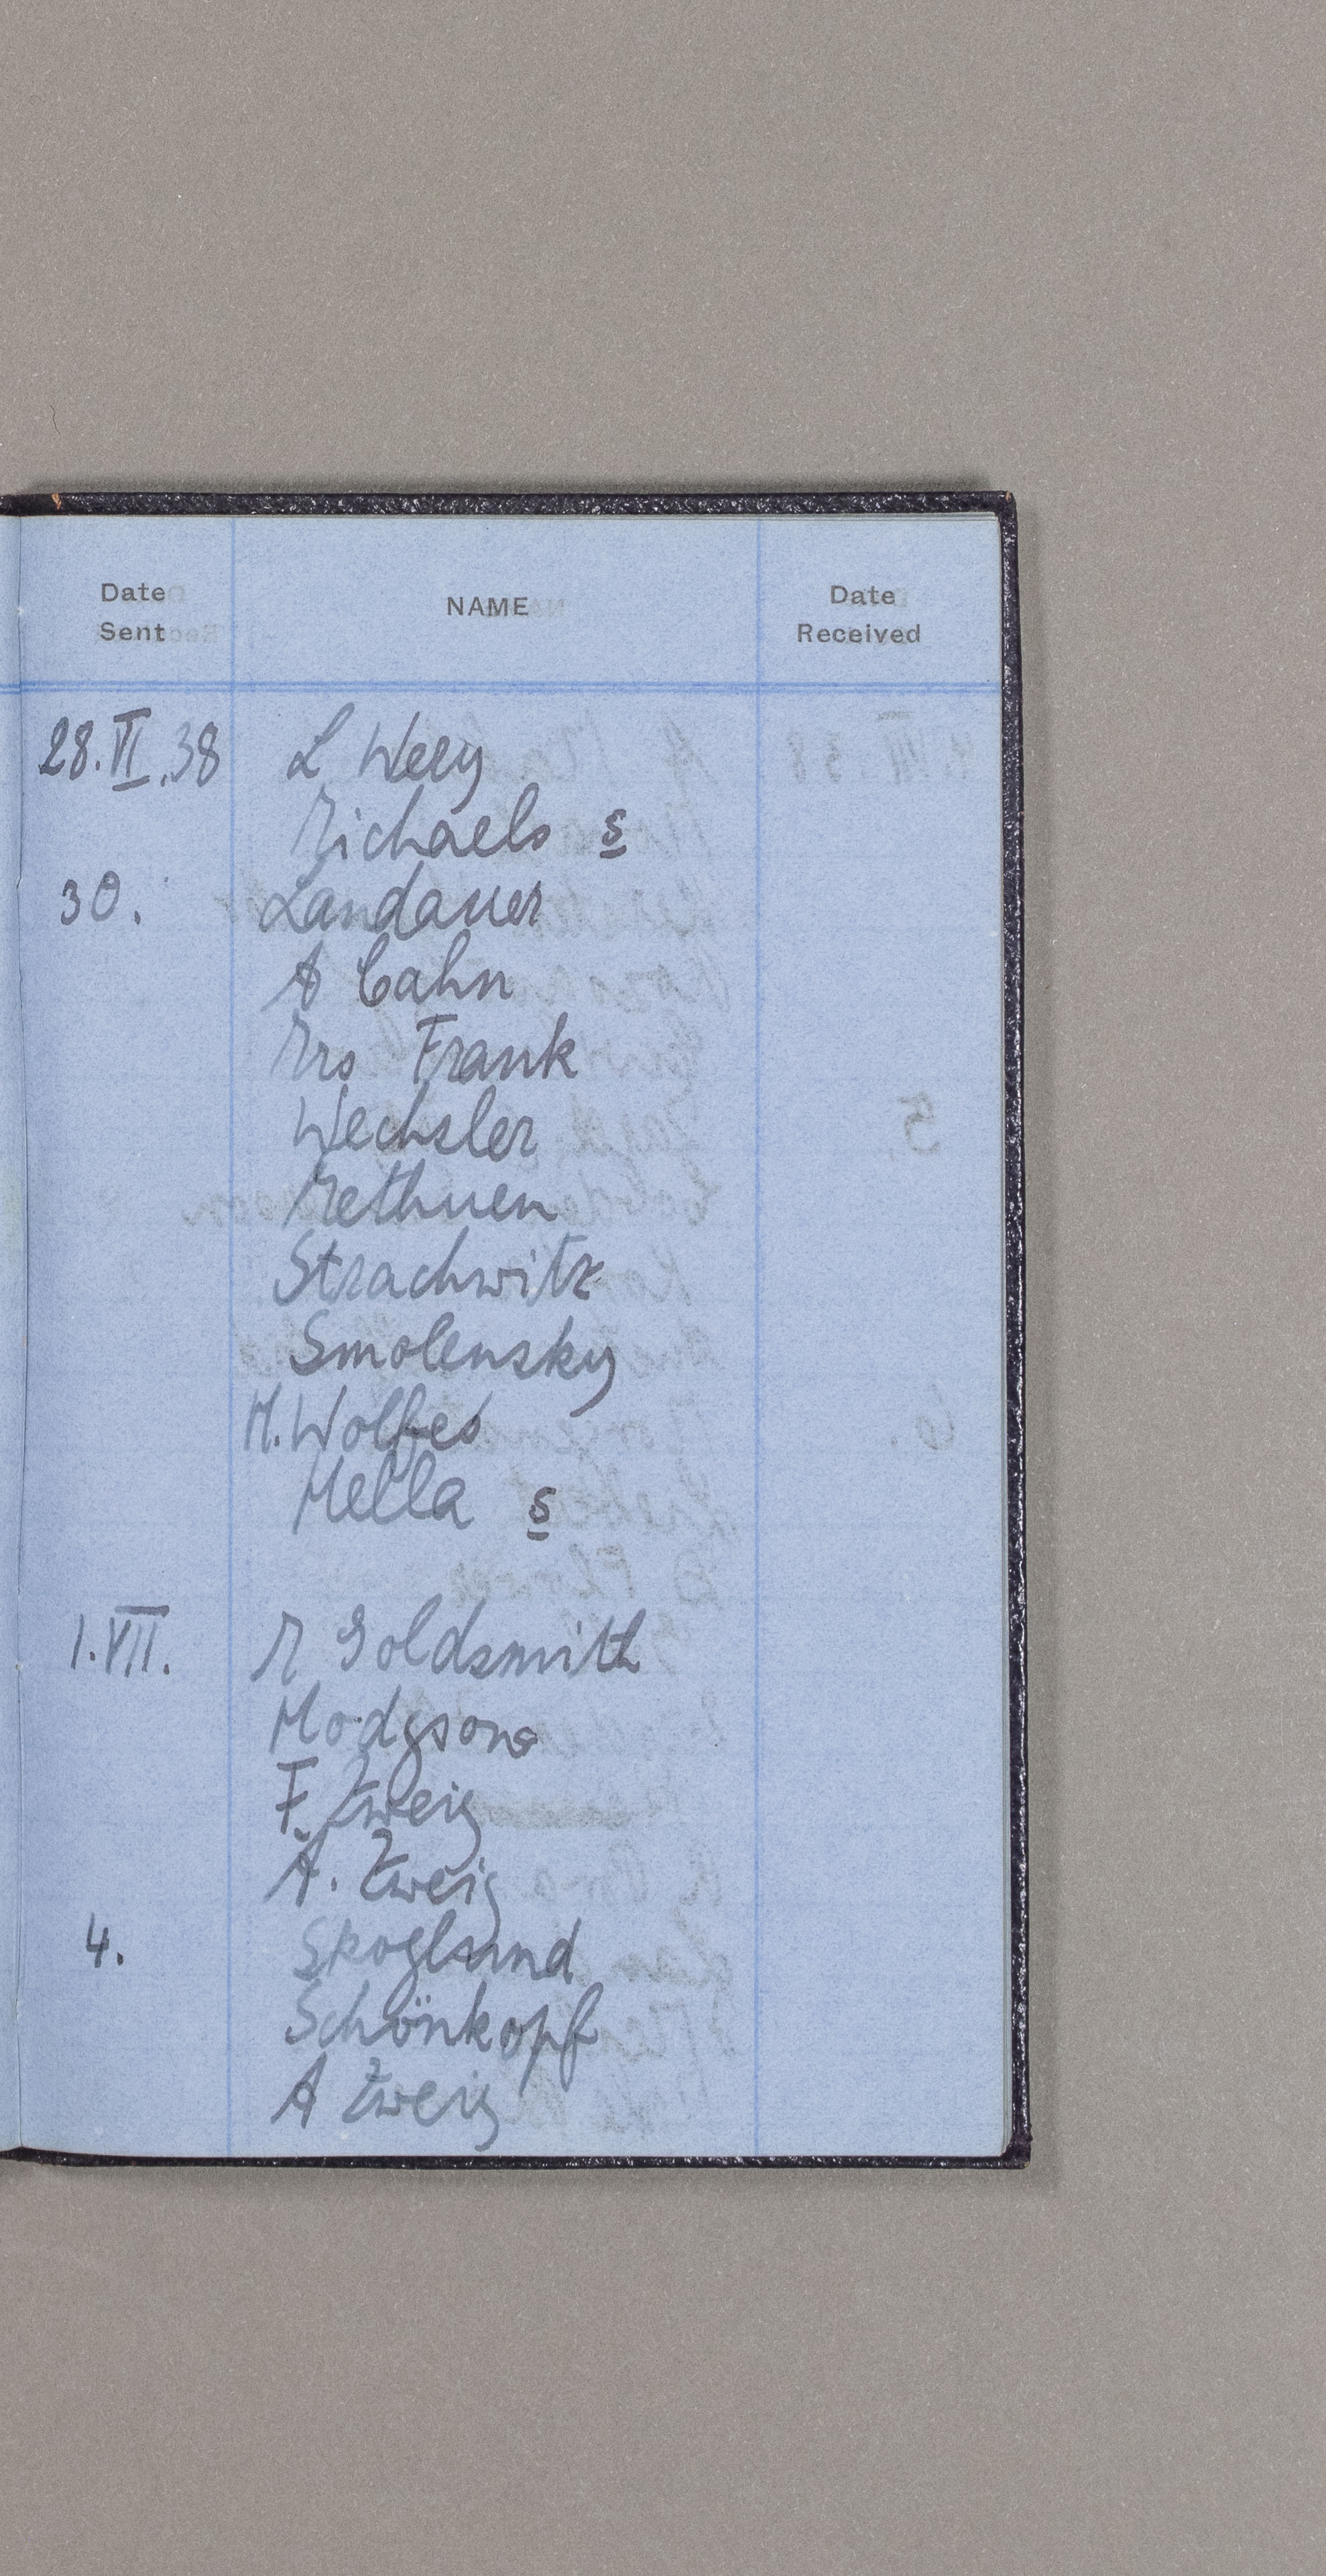 Date Sent NAME Date Received
28.VI.38 L Wely
Michaels s
30. Landauer
A Cahn
Mrs Frank
Wechsler
Methuen
Strachwitz
Smolensky
H. Wolfes
Hella s
1.VII. M Goldsmith
Hodgson
F. Zweig
A. Zweig
4. Skoglund
Schönkopf
A Zweig